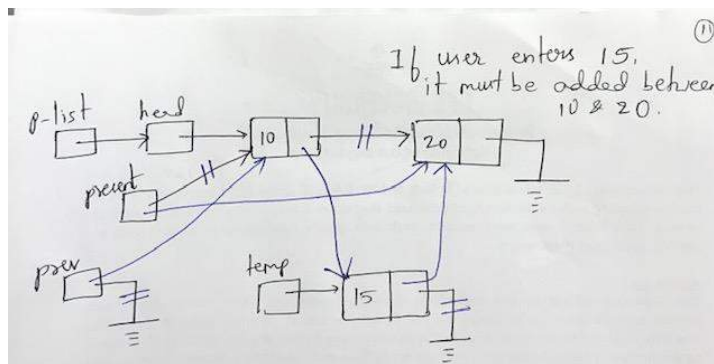 11
If user enters 15,
it must be added between
10 & 20.
p-list
head
10
20
present
prev
temp
15